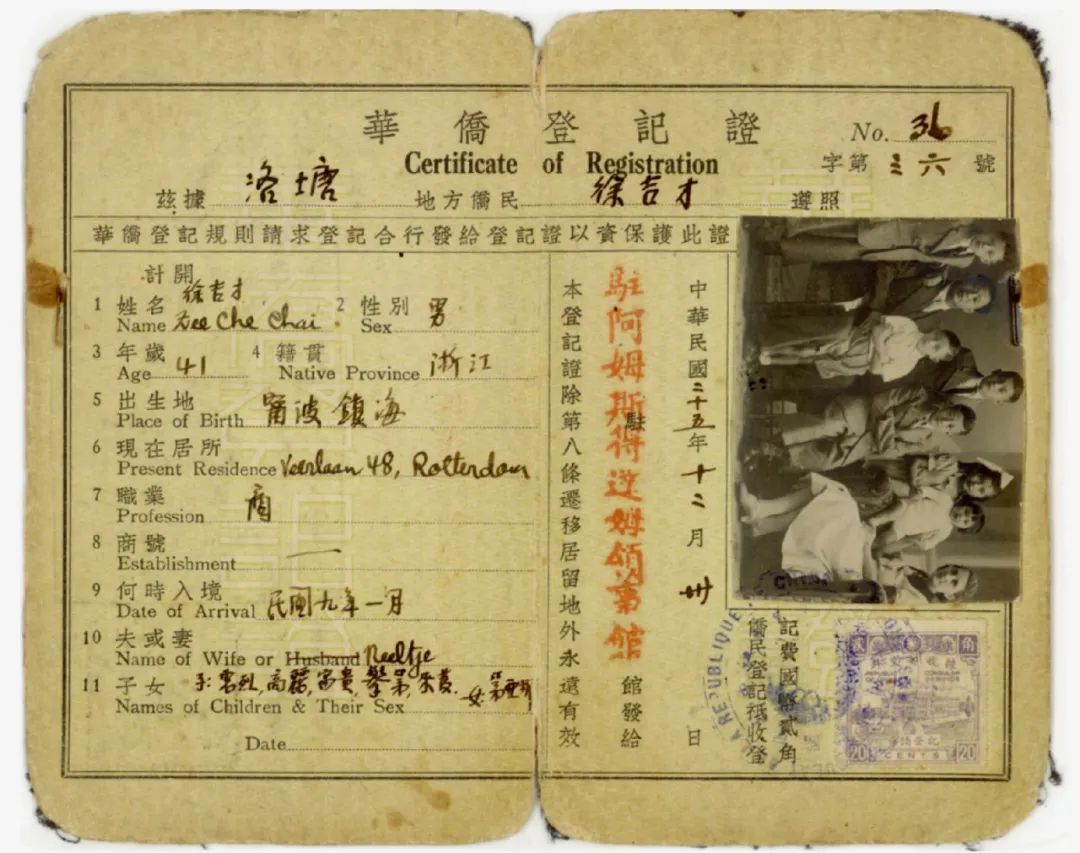 華僑登記證
No. 36
Certificate of Registration
字第三六號
茲據洛塘地方僑民徐吉才遵照
華僑登記規則請求登記合行發給登記證以資保護此證
計開
1 姓名 徐吉才
Name Zee Che Chai
2 性別 男
Sex
3 年歲 41
Age
4 籍貫 浙江
Native Province
5 出生地 甯波鎮海
Place of Birth
6 現在居所
Present Residence Veerlaan 48, Rotterdam
7 職業 商
Profession
8 商號 —
Establishment
9 何時入境
Date of Arrival 民國九年一月
10 夫或妻
Name of Wife or Husband Neeltje
11 子女 子: 富貴, 女
Names of Children & Their Sex
Date
中華民國二十五年十二月卅日
駐阿姆斯得達姆領事館
駐 館發給
本登記證除第八條遷移居留地外永遠有效
僑民登記祗收登
記費國幣貳角
REPUBLIQUE
20 CENTS 20